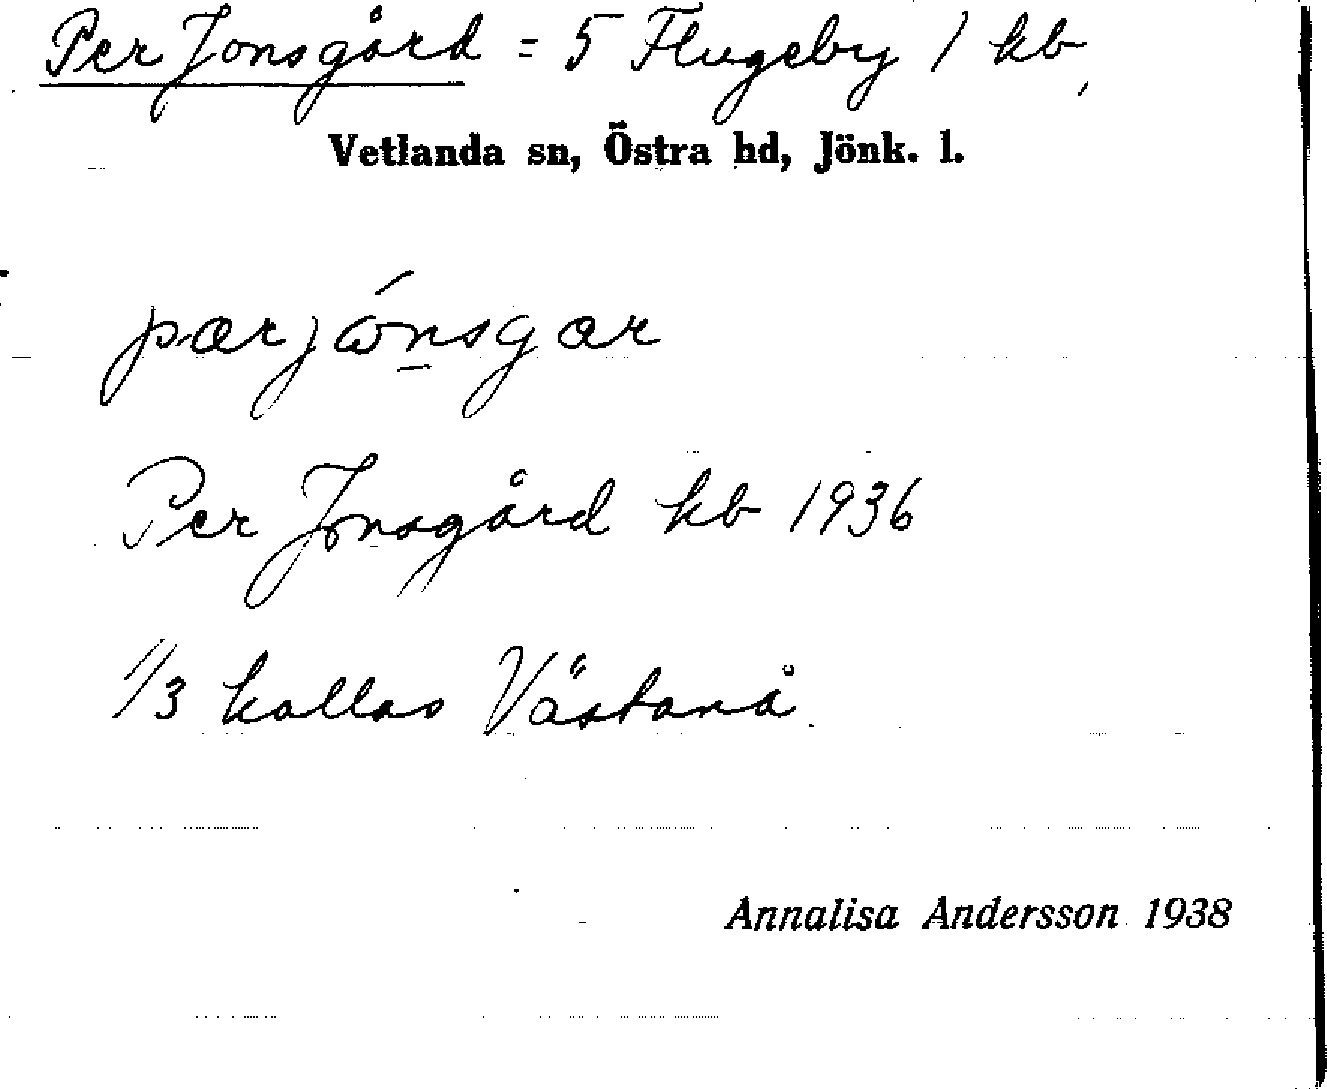 Per Jonsgård = 5 Flugeby 1 kb
Vetlanda sn, Östra hd, Jönk. l.
pærjónsgar
Per Jonsgård kb 1936
1/3 kallas Västanå
Annalisa Andersson 1938